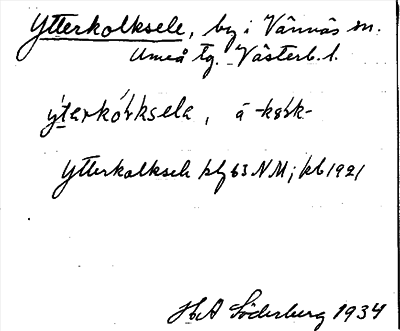 Ytterkolksele, by i Vännäs sn.
Umeå tg. Västerb. l.
ýtarkólksela, á -kålk-
Ytterkolksele klg 63 NM; kb 1921
H.A Söderberg 1934